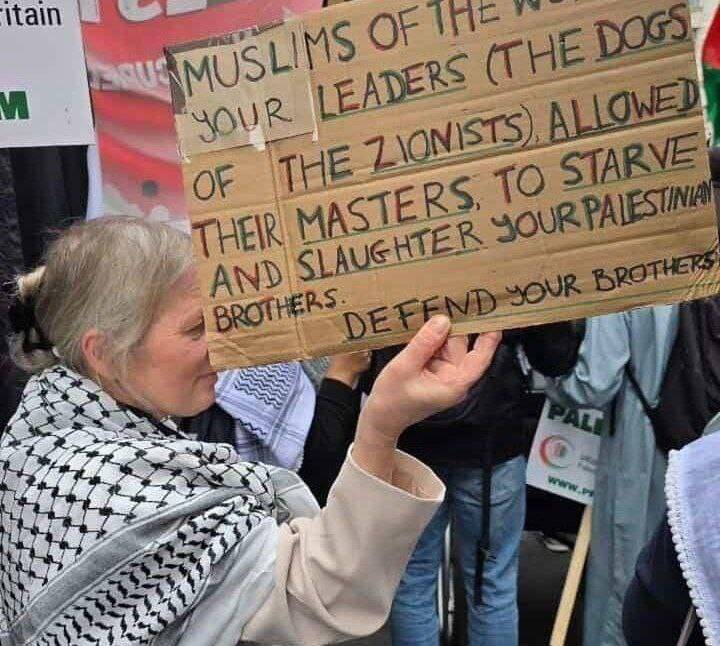 ritain
M
MUSLIMS OF THE
YOUR LEADERS (THE DOGS
OF THE ZIONISTS), ALLOWED
THEIR MASTERS, TO STARVE
AND SLAUGHTER YOUR PALESTINIAN
BROTHERS.
DEFEND YOUR BROTHERS
PAL
www.